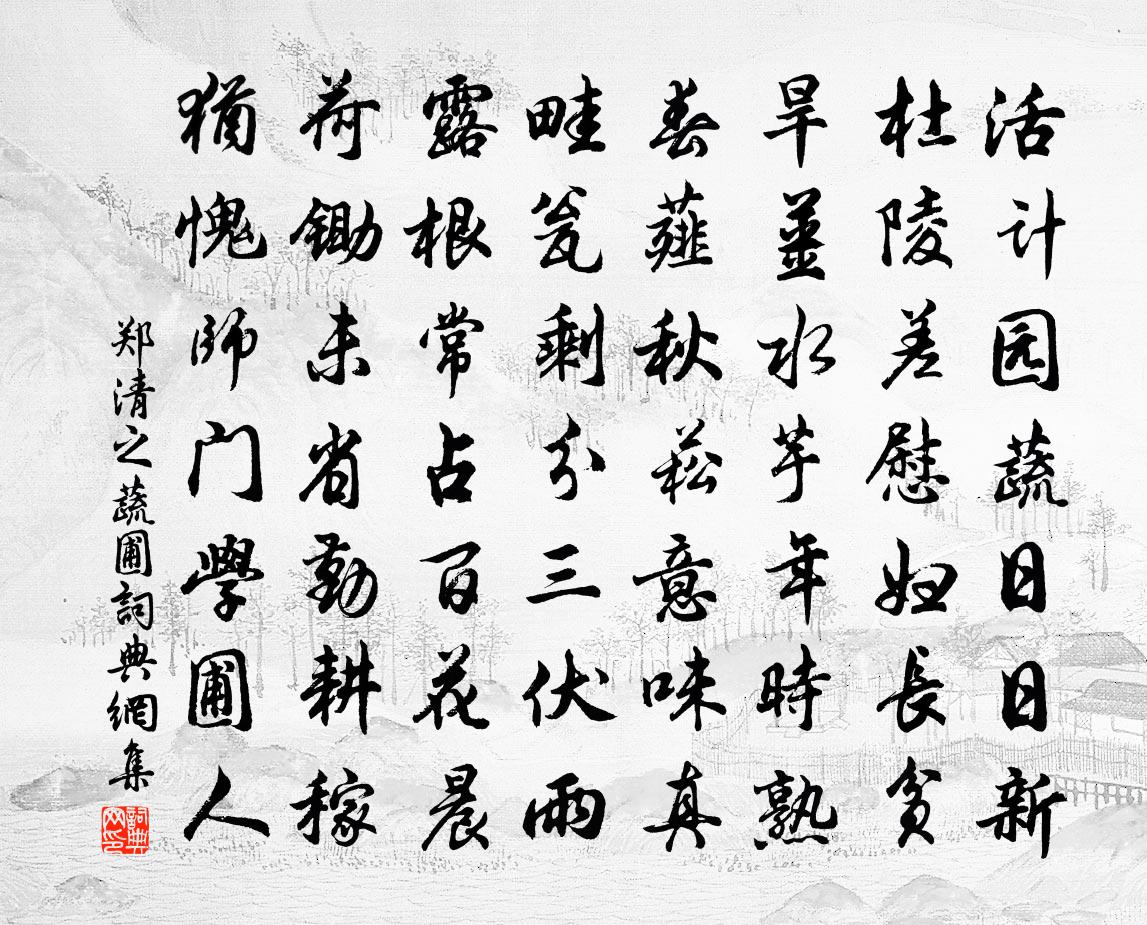 活计园蔬日日新
杜陵差慰妇長贫
旱薑水芋年時熟
春薤秋菘意味真
畦瓮剩分三伏雨
露根常占百花晨
荷锄未省勤耕稼
犹愧师门學圃人
郑清之蔬圃詞典網集
詞典网印